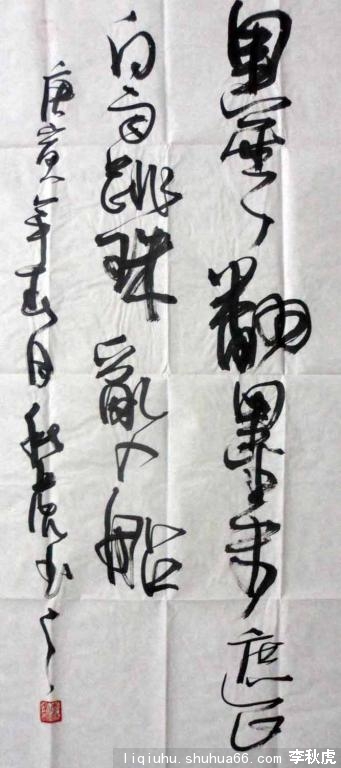 黑雲翻墨未遮山
白雨跳珠亂入船
庚寅年春月秋虎书
liqiuhu.shuhua66.com 李秋虎